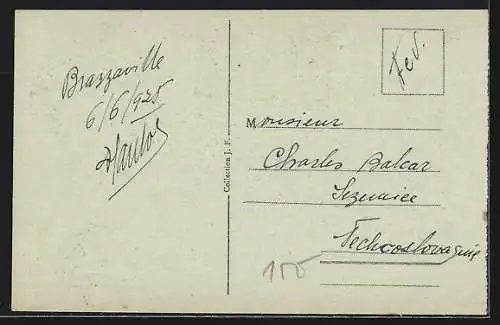 Brazzaville
6/6/925
Fev.
Monsieur
Charles Balcar
Sezemice
Techcoslovaquie
Collection J. F.
150